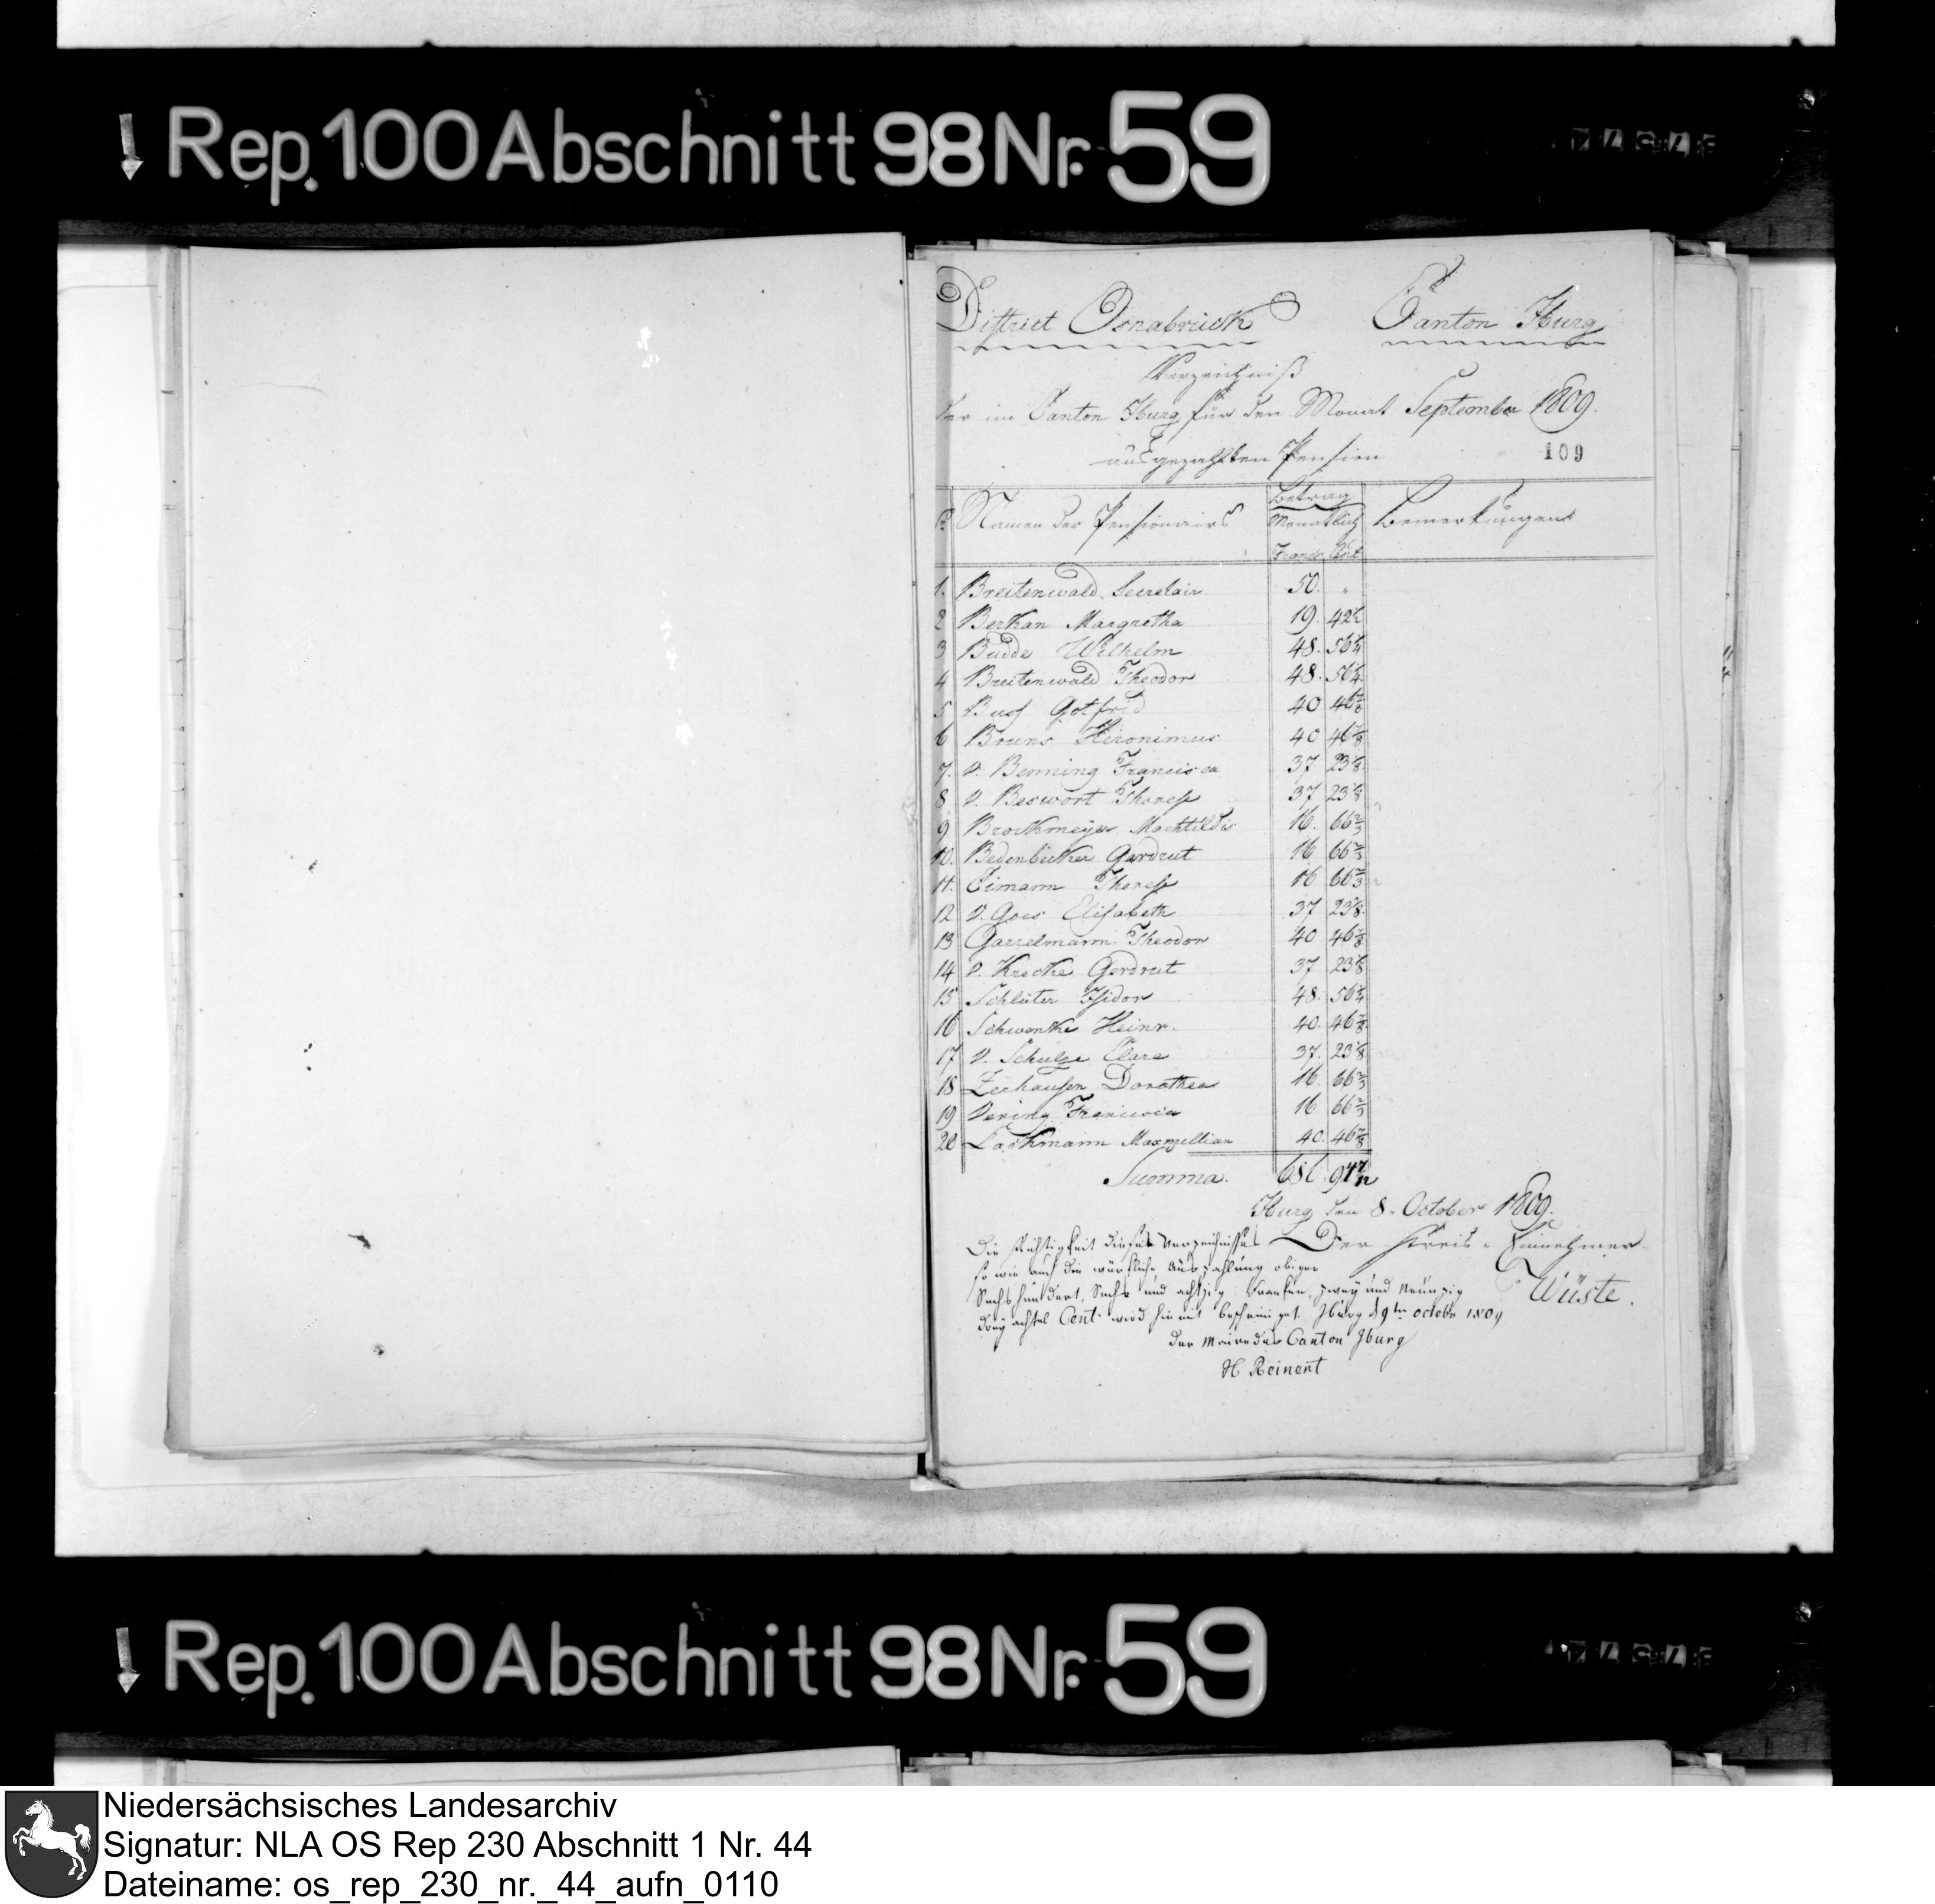 Rep. 100 Abschnitt 98 Nr. 59
District Osnabrück Canton Iburg
Verzeichniß
der im Canton Iburg für den Monat September 1809.
ausgezahlten Pension
109
Namen der Pensionairs Betrag Monatlich Bemerkungen
Francs Cent
1. Breitenwald Secretair 50. "
2 Berkan Margretha 19. 42½
3 Budde Wilhelm 48. 56¼
4 Breitenwald Theodor 48. 56¼
5 Buss Gotfrid 40 46⅞
6 Bruns Hironimus 40 46⅞
7. v. Benning Francisca 37 23⅛
8 v. Beswort Therese 37 23⅛
9 Brockmeyer Machtildis 16. 66⅔
10. Bedenbecker Gerdrut 16 66⅔
11. Eimann Therese 16 66⅔
12 v. Goes Elisabeth 37 23⅛
13 Garrelmann Theodor 40 46⅞
14 v. Kreche Gerdrut 37 23⅛
15 Schlüter Isidor 48. 56¼
16 Schwenke Heinr. 40. 46⅞
17 v. Schulze Clara 37. 23⅛
18 Zerhausen Dorothea 16. 66⅔
19 Vering Francisca 16 66⅔
20 Lackmann Maxmillian 40. 46⅞
Summa. 686 94 7/12
Iburg den 8. October 1809.
Die Richtigkeit dieses Verzeichnisses Der Kreis-Einnehmer
so wie auch die würkliche Auszahlung obiger
Sechshundert, Sechs und achtzig Franken, zwey und Neunzig Wüste.
drey achtel Cent. wird hiemit bescheiniget. Iburg d 9ten octobr 1809
Der Maire des Canton Iburg
H Reinert
Rep. 100 Abschnitt 98 Nr. 59
Niedersächsisches Landesarchiv
Signatur: NLA OS Rep 230 Abschnitt 1 Nr. 44
Dateiname: os_rep_230_nr._44_aufn_0110